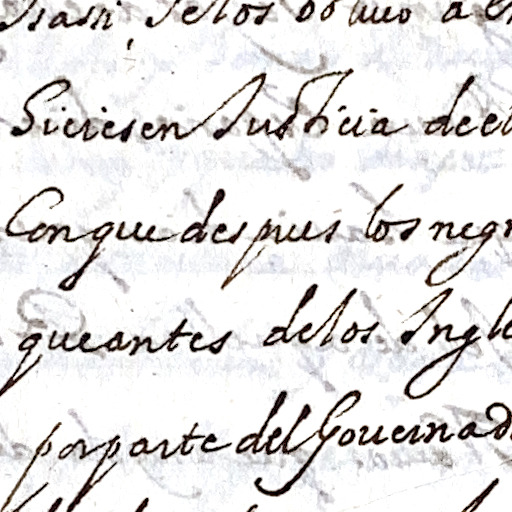 Siciesen Justicia de el
Conque despues los negr
que antes de los Ingle
por parte del Gouernad